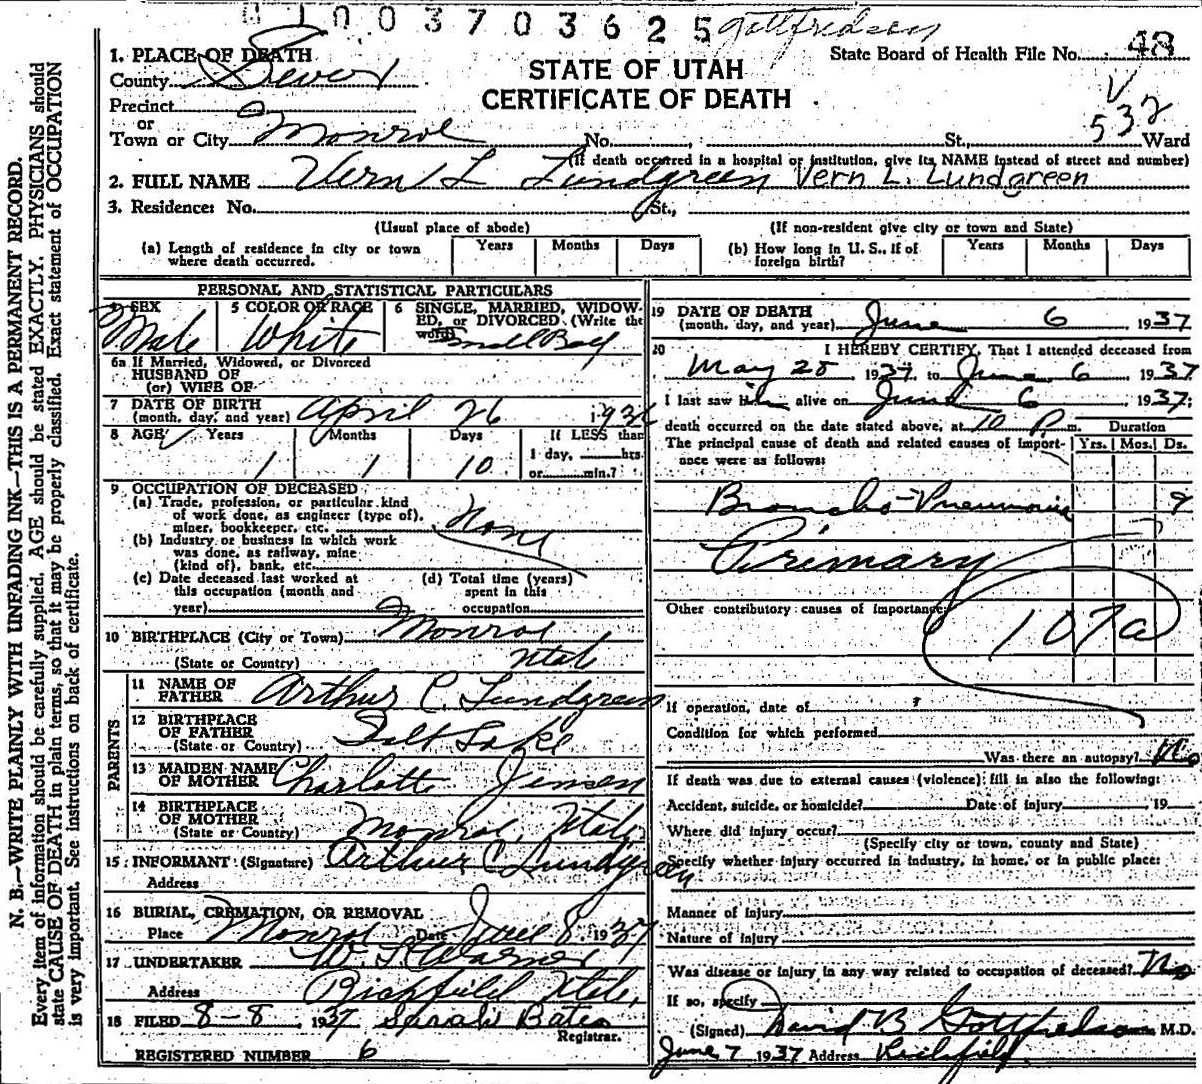 1003703625 Gottfredsen
State Board of Health File No. 48
STATE OF UTAH
CERTIFICATE OF DEATH
V
532
1. PLACE OF DEATH
County Sevier
Precinct
or
Town or City Monroe No. St., Ward
(If death occurred in a hospital or institution, give its NAME instead of street and number)
2. FULL NAME Vern L Lundgreen Vern L. Lundgreen
3. Residence: No. St.,
(Usual place of abode) (If non-resident give city or town and State)
(a) Length of residence in city or town where death occurred. Years Months Days
(b) How long in U. S., if of foreign birth? Years Months Days
PERSONAL AND STATISTICAL PARTICULARS
4 SEX Male
5 COLOR OR RACE White
6 SINGLE, MARRIED, WIDOWED, or DIVORCED. (Write the word) Small Boy
6a If Married, Widowed, or Divorced
HUSBAND OF
(or) WIFE OF
7 DATE OF BIRTH
(month, day, and year) April 26 1936
8 AGE Years Months Days If LESS than
1 1 10 1 day, hrs.
or min.?
9 OCCUPATION OF DECEASED
(a) Trade, profession, or particular kind
of work done, as engineer (type of),
miner, bookkeeper, etc. None
(b) Industry or business in which work
was done, as railway, mine
(kind of), bank, etc.
(c) Date deceased last worked at
this occupation (month and
year)
(d) Total time (years)
spent in this
occupation
10 BIRTHPLACE (City or Town) Monroe
(State or Country) Utah
PARENTS
11 NAME OF
FATHER Arthur C. Lundgreen
12 BIRTHPLACE
OF FATHER
(State or Country) Salt Lake
13 MAIDEN NAME
OF MOTHER Charlotte Jensen
14 BIRTHPLACE
OF MOTHER
(State or Country) Monroe, Utah
15 INFORMANT (Signature) Arthur C Lundgreen
Address
16 BURIAL, CREMATION, OR REMOVAL
Place Monroe Date June 8 1937
17 UNDERTAKER
Address Richfield Utah.
18 FILED 8-8 1937 Sarah Bates
Registrar.
REGISTERED NUMBER 6
19 DATE OF DEATH
(month, day, and year) June 6 1937
20 I HEREBY CERTIFY, That I attended deceased from
May 28 1937 to June 6 1937
I last saw him alive on June 6 1937;
death occurred on the date stated above, at 10 P m. Duration
The principal cause of death and related causes of importance were as follows: Yrs. Mos. Ds.
Broncho-Pneumonia 9
Primary
Other contributory causes of importance:
107a
If operation, date of
Condition for which performed
Was there an autopsy? No
If death was due to external causes (violence) fill in also the following:
Accident, suicide, or homicide? Date of injury , 19
Where did injury occur?
(Specify city or town, county and State)
Specify whether injury occurred in industry, in home, or in public place:
Manner of Injury
Nature of injury
Was disease or injury in any way related to occupation of deceased? No
If so, specify
(Signed) David B Gottfredson M.D.
June 7 1937 Address Richfield
N. B.—WRITE PLAINLY WITH UNFADING INK—THIS IS A PERMANENT RECORD.
Every item of information should be carefully supplied. AGE should be stated EXACTLY. PHYSICIANS should
state CAUSE OF DEATH in plain terms, so that it may be properly classified. Exact statement of OCCUPATION
is very important. See instructions on back of certificate.